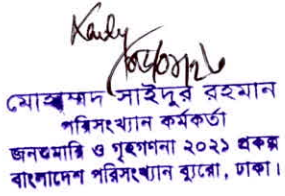 মোহাম্মদ সাইদুর রহমান
পরিসংখ্যান কর্মকর্তা
জনশুমারি ও গৃহগণনা ২০২১ প্রকল্প
বাংলাদেশ পরিসংখ্যান ব্যুরো, ঢাকা।